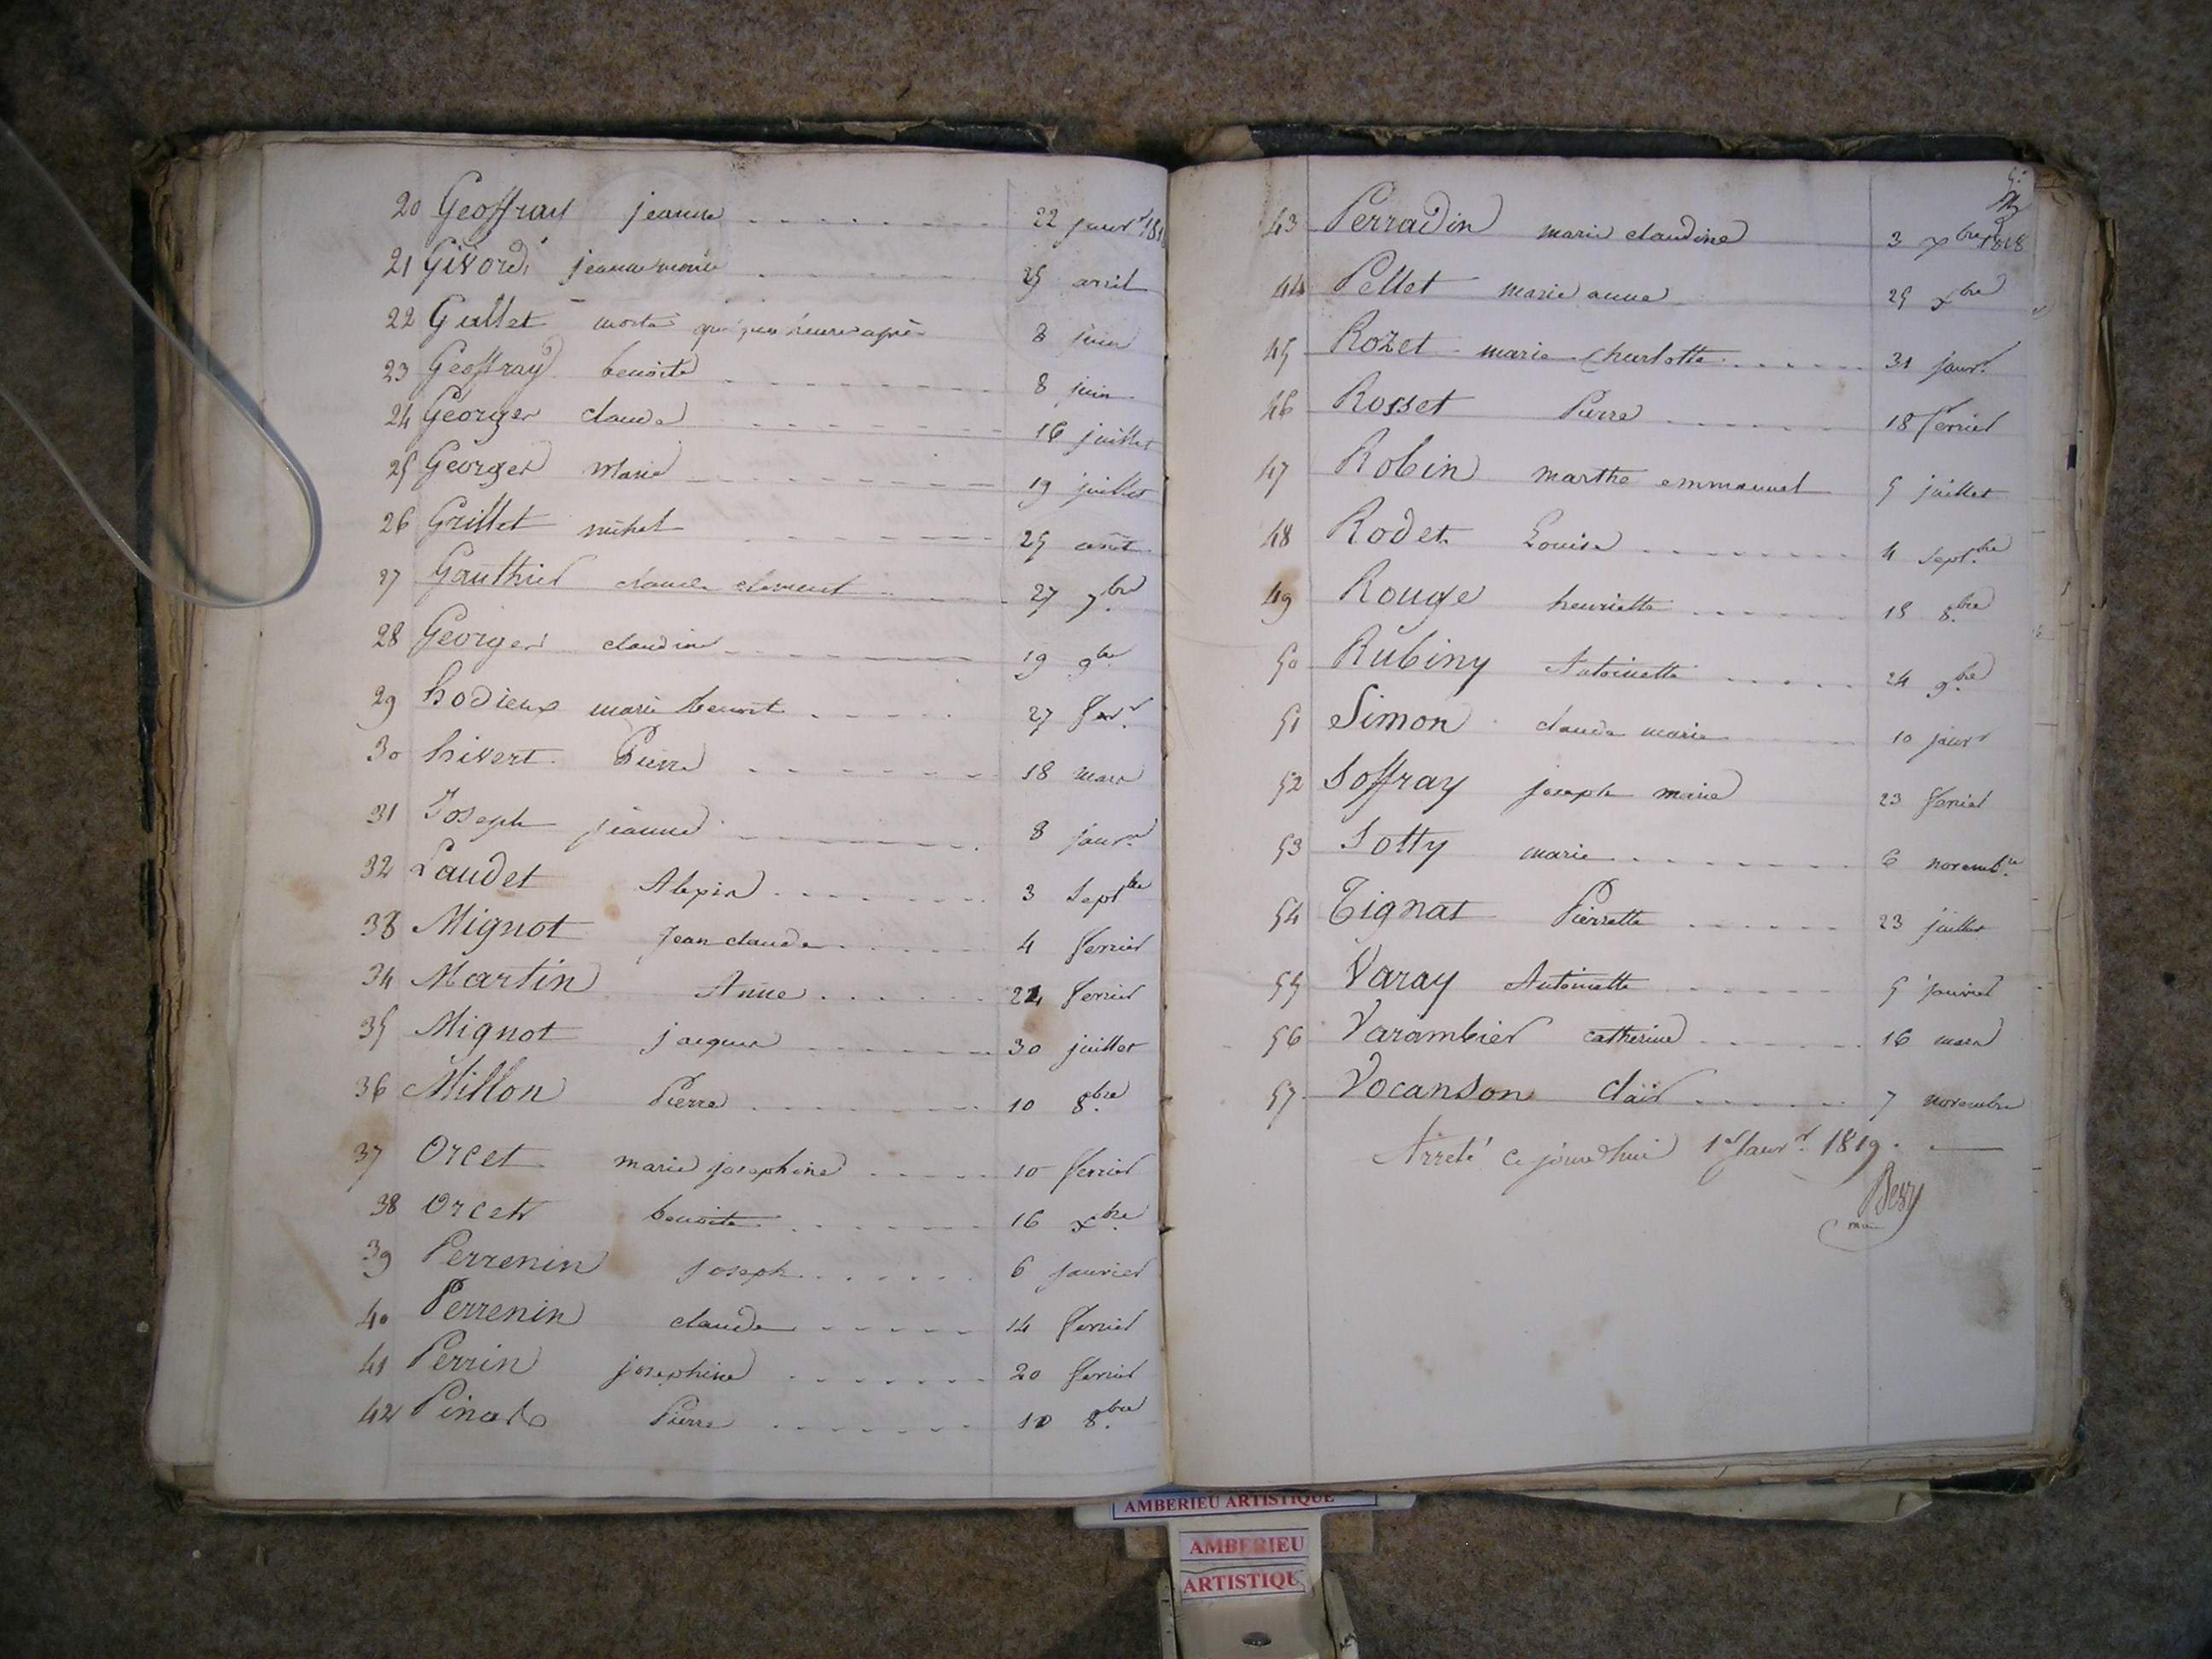 20 Geoffray jeanne 22 janvr 181
21 Givord jeanne marie 25 avril
22 Gullet morte heure après 8 juin
23 Geoffray benoite 8 juin
24 Georges claude 16 juillet
25 Georges Marie 19 juillet
26 Grillet michel 25 août
27 Gauthier claude clement 27 7bre
28 Georges claudine 19 9bre
29 hodieux marie benoit 27 fevr
30 hivert Pierre 18 mars
31 Joseph jeanne 8 janvr
32 Laudet Alexis 3 Septbre
33 Mignot Jean claude 4 fevrier
34 Martin Anne 24 fevrier
35 Mignot jacques 30 juillet
36 Millon Pierre 10 8bre
37 Orcet marie josephine 10 fevrier
38 Orcet benoite 16 xbre
39 Perrenin Joseph 6 janvier
40 Perrenin claude 14 fevrier
41 Perrin josephine 20 fevrier
42 Pierre 10 8bre
43 Perradin marie claudine 3 xbre 1818
44 Pellet marie anne 25 xbre
45 Rozet marie Charlotte 31 janvr
46 Rosset Pierre 18 fevrier
47 Robin marthe emmanuel 5 juillet
48 Rodet Louise 4 Septbre
49 Rouge henriette 15 8bre
50 Rubiny Antoinette 24 9bre
51 Simon claude marie 10 janvr
52 Soffray joseph marie 23 fevrier
53 Sotty marie 6 novembre
54 Tignat Pierrette 23 juillet
55 Varay Antoinette 5 janvier
56 Varambier catherine 16 mars
57 Vocanson Clair 7 novembre
Arreté ce jourd'hui 1er Janvr 1819.
AMBERIEU ARTISTIQUE
AMBERIEU
ARTISTIQU